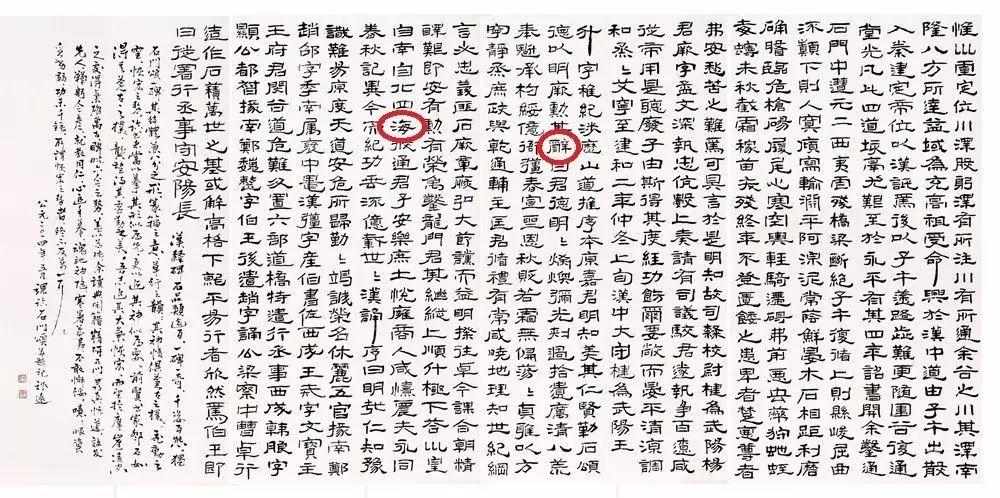 惟巛靈定位川澤股躬澤有所注川有所通余谷之川其澤南
隆八方所達益域為充高祖受命興於漢中道由子午出散
入秦建定帝位以漢詆焉後以子午途路歰難更隨圍谷復通
堂光凡此四道垓鬲尤艱至於永平其有四年詔書開余鑿通
石門中遭元二西夷虐殘橋梁斷絕子午復循上則縣峻屈曲
流顛下則入冥傾寫輸淵平阿湶泥常蔭鮮晏木石相距利磨
确磐臨危槍碭履尾心寒空輿輕騎遰礙弗前惡虫蔽狩蛇蛭
毒蟃未秋截霜稼苗夭殘終年不登匱餧之患卑者楚惡尊者
弗安愁苦之難焉可具言於是明知故司隸校尉楗為武陽楊
君厥字孟文深執忠伉數上奏請有司議駮君遂執爭百遼咸
從帝用是聽廢子由斯得其度經功飭爾要敞而晏平清涼調
和烝〻艾寧至建和二年仲冬上旬漢中大守楗為武陽王
升字稚紀涉歷山道推序本原嘉君明知美其仁賢勒石頌
德以明厥勳其辭曰君德明〻炳煥彌光刺過拾遺厲清八荒
奉魁承杓綏億衙彊春宣聖恩秋貶若霜無偏蕩〻貞雅以方
寧靜烝庶政與乾通輔主匡君循禮有常咸曉地理知世紀綱
言必忠義匪石厥章恢弘大節讜而益明揆往卓今謀合朝情
醳艱即安有勳有榮禹鑿龍門君其繼縱上順斗極下答巛皇
自南自北四海攸通君子安樂庶士悅雍商人咸憘農夫永同
春秋記異今而紀功垂流億載世〻歎誦序曰明哉仁知豫
識難易原度天道安危所歸勤〻竭誠榮名休麗五官掾南鄭
趙邵字季南屬褒中晁漢彊字產伯書佐西成王戒字文寶主
王府君閔谷道危難分置六部道橋特遣行丞事西成韓朖字
顯公都督掾南鄭魏整字伯玉後遣趙誦字公梁案察中曹卓行
造作石積萬世之基或解高格下就平易行者欣然焉伯玉即
日徙署行丞事守安陽長